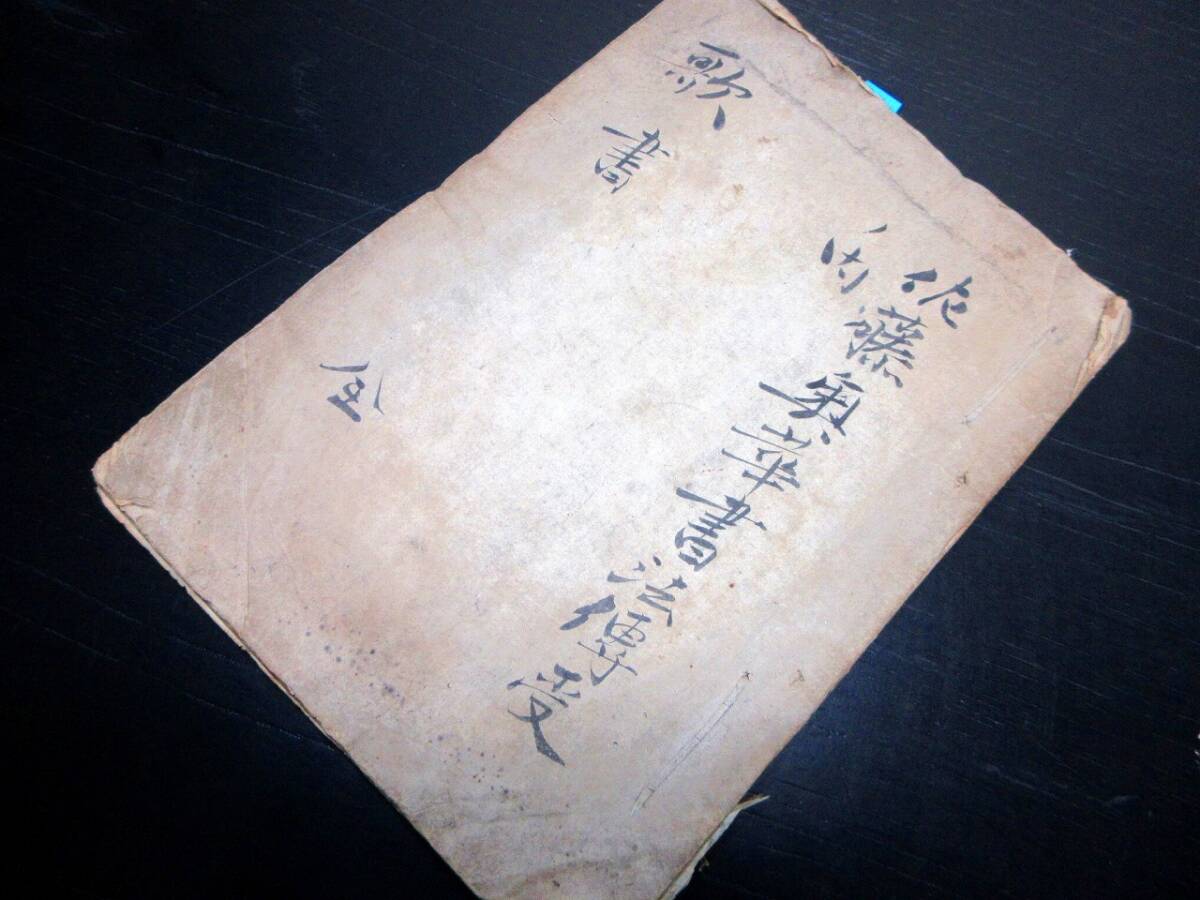 佐藤奥華書法傳受
内
歌書
全